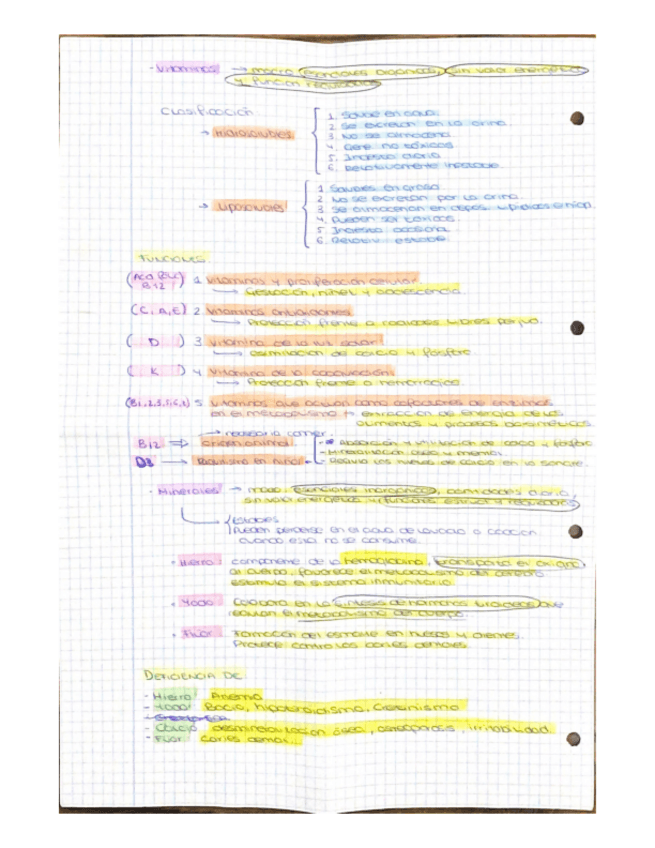 - Vitaminas → micro, esenciales orgánicos, sin valor energético
y función reguladora
Clasificación
→ Hidrosolubles
1. Soluble en agua.
2. Se excretan en la orina.
3. No se almacena
4. no tóxicos
5. Ingesta diaria
6. Relativamente inestable.
→ Liposolubles
1. Solubles en grasa
2. No se excretan por la orina
3. Se almacenan en
4. Pueden ser tóxicos.
5. Ingesta
6. Relativ. estable.
FUNCIONES
(B12) 1 Vitaminas y proliferación celular
→ Gestación, niñez y adolescencia.
(C, A, E) 2 Vitaminas antioxidantes
→ Protección frente a radicales libres
( D ) 3 Vitamina de la luz solar
→ asimilación de calcio y fósforo.
( K ) 4 Vitamina de la coagulación
→ Protección frente a hemorragias.
5 Vitaminas que actúan como cofactores de enzimas
en el metabolismo → extracción de energía de los
alimentos y procesos
→ necesario comer.
B12 ⇒ origen animal.
- Absorción y utilización de calcio y fósforo
- Mineralización
D3 → Raquitismo en niños
- Regula los niveles de calcio en la sangre.
- Minerales → esenciales inorgánicos, cantidades
sin valor energético y funciones estruct y reguladora
Estables
Pueden perderse en el agua de lavado o cocción
cuando esta no se consume.
• Hierro: componente de la hemoglobina, transporta el oxígeno
al cuerpo, favorece el metabolismo del cerebro
estimula el sistema inmunitario.
• Yodo: Colabora en la síntesis de hormonas tiroideas que
regulan el metabolismo del cuerpo.
• Flúor: Formación del esmalte en huesos y dientes.
Protege contra las caries dentales.
DEFICIENCIA DE:
- Hierro: Anemia
- Yodo: Bocio, hipotiroidismo, Cretinismo
- Calcio: desmineralización ósea, osteoporosis, irritabilidad
- Flúor: caries